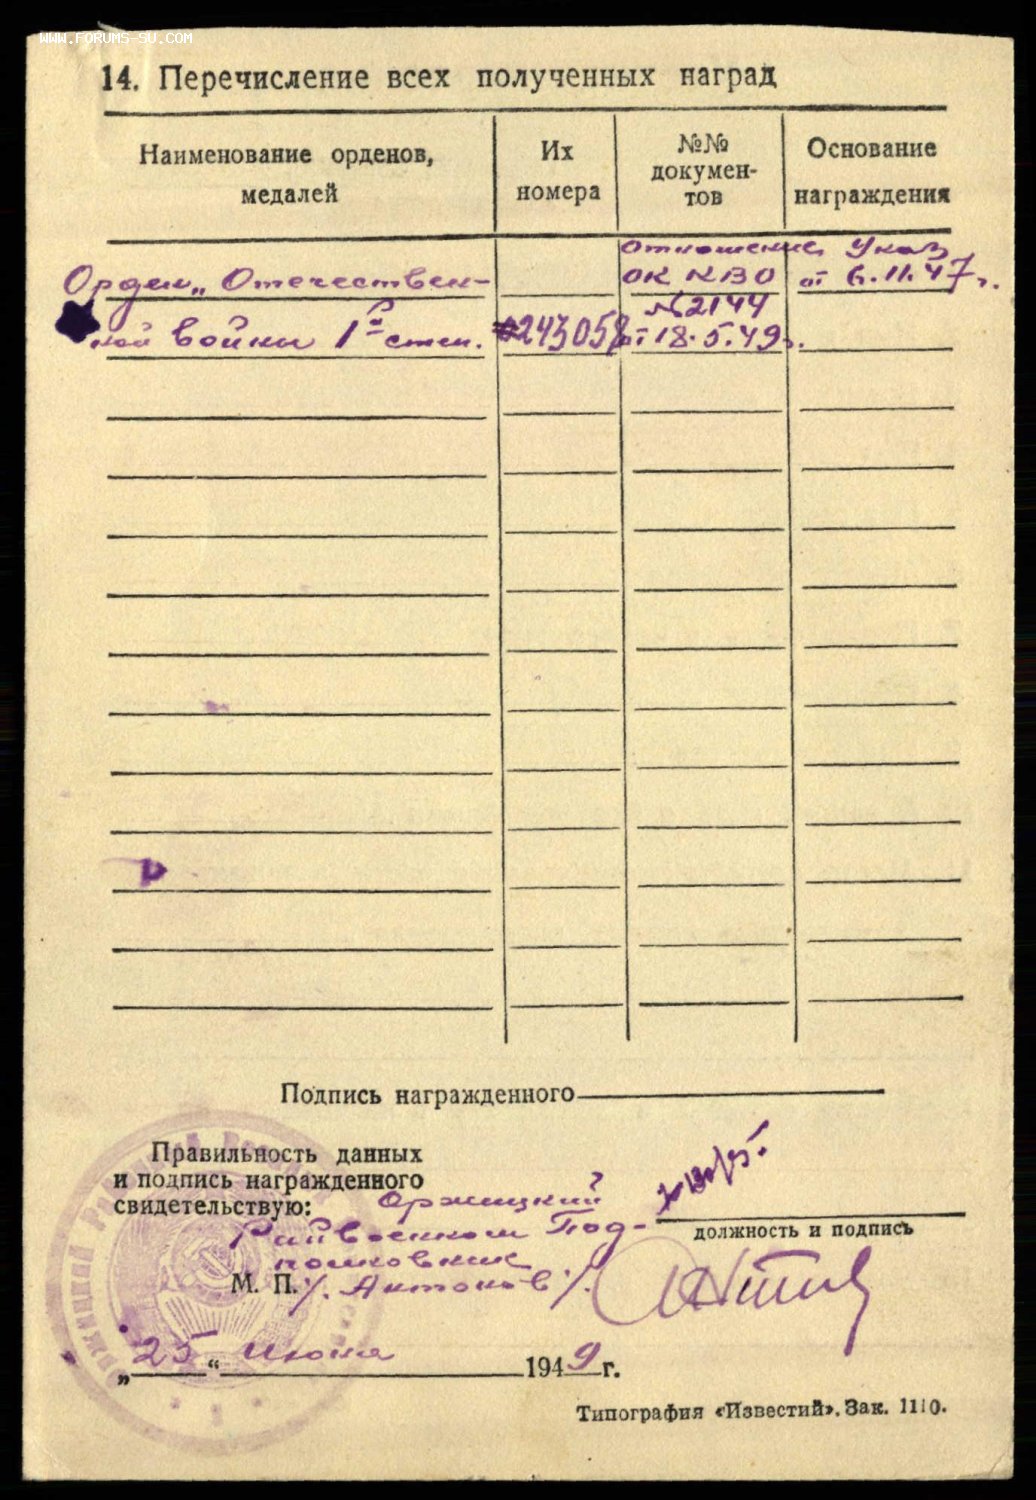 WWW.FORUMS-SU.COM
14. Перечисление всех полученных наград
Наименование орденов, медалей
Их номера
№№ документов
Основание награждения
Орден „Отечествен-
ной войны 1й степ.
243058
Отношение
ОК КВО
№2144
от 18.5.49г.
Указ
от 6.11.47г.
Подпись награжденного
Правильность данных
и подпись награжденного
свидетельствую:
Оржицкий
Райвоенком Под-
полковник
М. П. /. Антонов /.
должность и подпись
„25“ Июня 1949 г.
Типография «Известий». Зак. 1110.